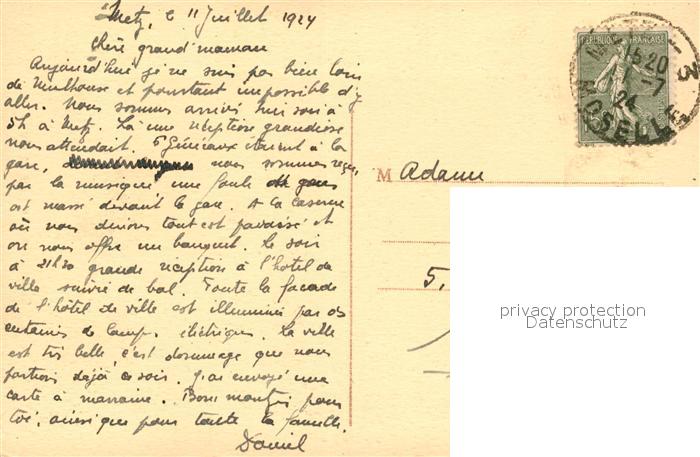 Metz, le 11 Juillet 1924
Chère grand'maman
Aujourd'hui je ne suis pas bien loin
de Mulhouse et pourtant impossible d'y
aller. Nous sommes arrivés hier soir à
5h à Metz. Là une réception grandiose
nous attendait. 5 Généraux étaient à la
gare, nous sommes reçus
par la musique, une foule de gens
est massé devant la gare. A la caserne
où nous dinons tout est pavoisé et
on nous offre un banquet. Le soir
à 21h30 grande réception à l'hôtel de
ville suivie de bal. Toute la façade
de l'hôtel de ville est illuminé par des
centaines de lampes électriques. La ville
est très belle, c'est dommage que nous
partions déjà ce soir. J'ai envoyé une
carte à marraine. Bons pour
toi, ainsi que pour toute la famille.
Daniel
REPUBLIQUE FRANÇAISE
15 20
-7
24
MOSELLE
3
M Adam
5,
privacy protection
Datenschutz